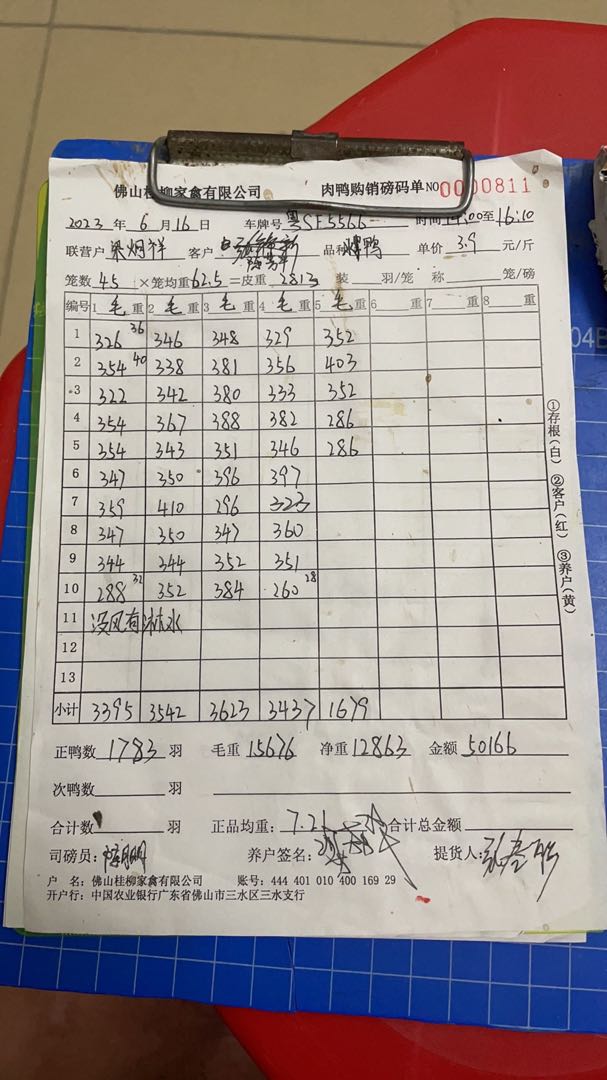 佛山桂柳家禽有限公司 肉鸭购销磅码单 NO 0000811
2023 年 6 月 16 日 车牌号 粤SF5566 时间 14:00至16:10
联营户 梁炳祥 客户 品种 鸭 单价 3.9 元/斤
笼数 45 ×笼均重62.5=皮重 2813 装 羽/笼 称 笼/磅
编号 1 毛 重 2 毛 重 3 毛 重 4 毛 重 5 毛 重 6 重 7 重 8 重
1 326 36 346 348 329 352
2 354 40 338 381 356 403
3 322 342 380 333 352
4 354 367 388 382 286
5 354 343 351 346 286
6 347 350 396 397
7 359 410 296 323
8 347 350 347 360
9 344 344 352 351
10 288 32 352 384 260 28
11 没风有淋水
12
13
小计 3395 3542 3623 3437 1679
正鸭数 1783 羽 毛重 15676 净重 12863 金额 50166
次鸭数 羽
合计数 羽 正品均重: 7.21 合计总金额
司磅员: 养户签名: 提货人:
户 名: 佛山桂柳家禽有限公司 账号: 444 401 010 400 169 29
开户行: 中国农业银行广东省佛山市三水区三水支行
①存根(白) ②客户(红) ③养户(黄)
04B